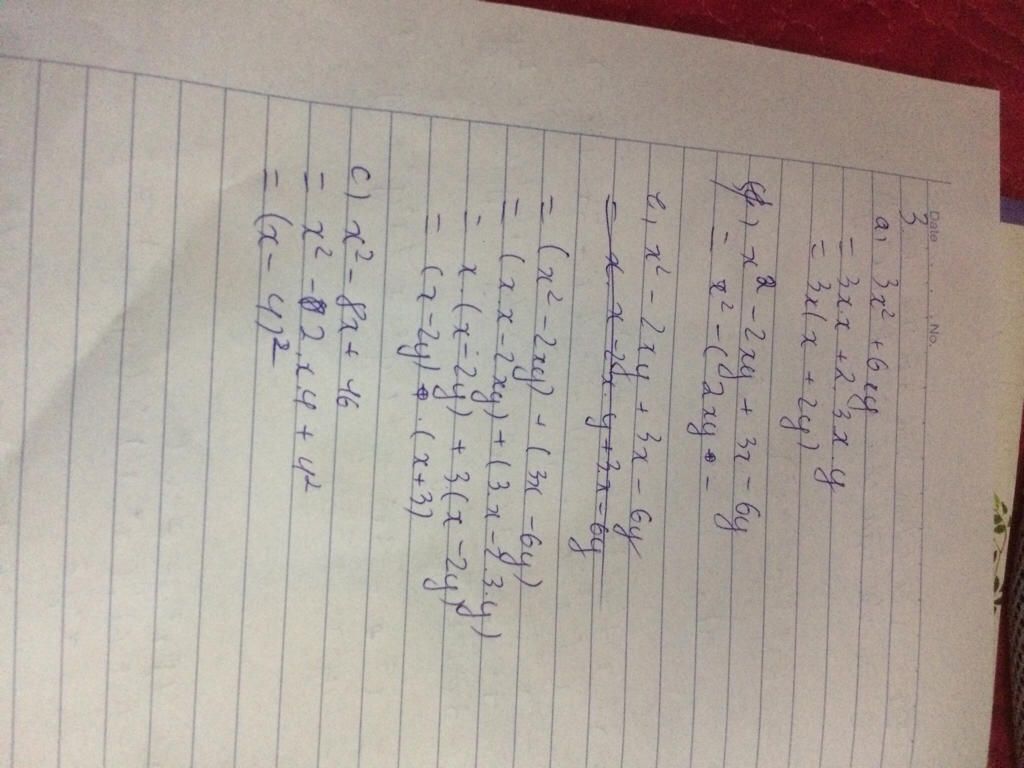 Date No.
3.
a) 3x² + 6xy
= 3x.x + 2.3x.y
= 3x(x + 2y)
b) x² - 2xy + 3x - 6y
= x² - (2xy -
b) x² - 2xy + 3x - 6y
= x.x - 2x.y + 3.x - 6y
= (x² - 2xy) + (3x - 6y)
= (x.x - 2xy) + (3.x - 2.3.y)
= x.(x - 2y) + 3.(x - 2y)
= (x - 2y).(x + 3)
c) x² - 8x + 16
= x² - 2.x.4 + 4²
= (x - 4)²